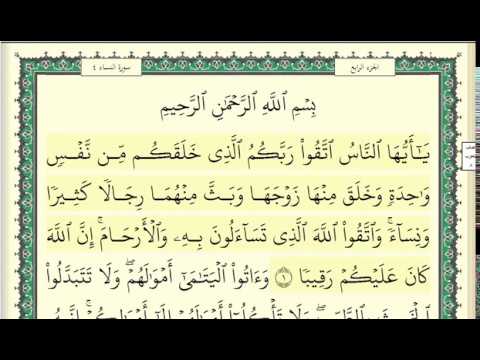 الجزء الرابع
سورة النساء ٤
بِسْمِ ٱللَّهِ ٱلرَّحْمَٰنِ ٱلرَّحِيمِ
يَـٰٓأَيُّهَا ٱلنَّاسُ ٱتَّقُوا۟ رَبَّكُمُ ٱلَّذِى خَلَقَكُم مِّن نَّفْسٍ
وَٰحِدَةٍ وَخَلَقَ مِنْهَا زَوْجَهَا وَبَثَّ مِنْهُمَا رِجَالًا كَثِيرًا
وَنِسَآءً ۚ وَٱتَّقُوا۟ ٱللَّهَ ٱلَّذِى تَسَآءَلُونَ بِهِۦ وَٱلْأَرْحَامَ ۚ إِنَّ ٱللَّهَ
كَانَ عَلَيْكُمْ رَقِيبًا ١ وَءَاتُوا۟ ٱلْيَتَـٰمَىٰٓ أَمْوَٰلَهُمْ ۖ وَلَا تَتَبَدَّلُوا۟